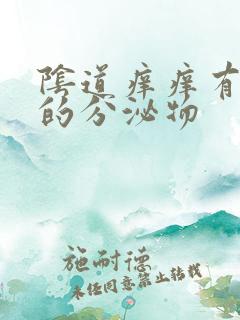 陰道痒痒有
的分泌物
施耐德
未经同意禁止转载